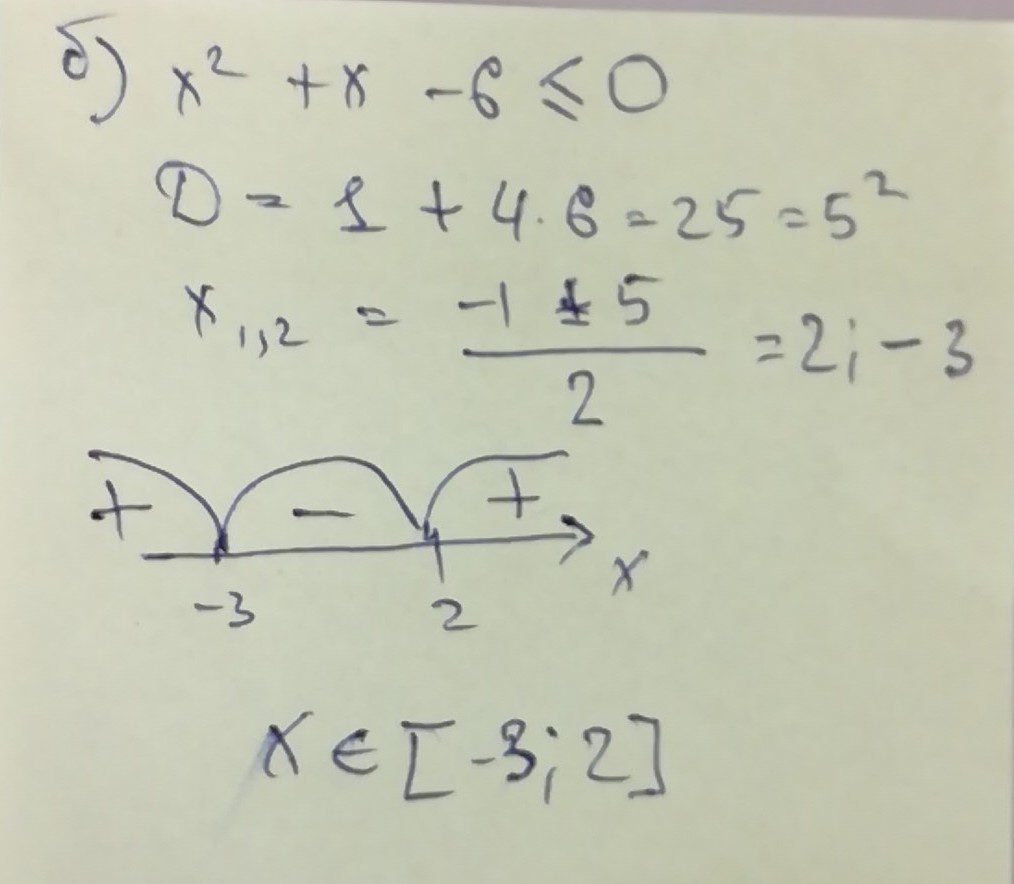 б) x² + x - 6 ⩽ 0
D = 1 + 4 · 6 = 25 = 5²
x₁,₂ = (-1 ± 5)/2 = 2; -3
+ - +
-3 2 x
x ∈ [-3; 2]